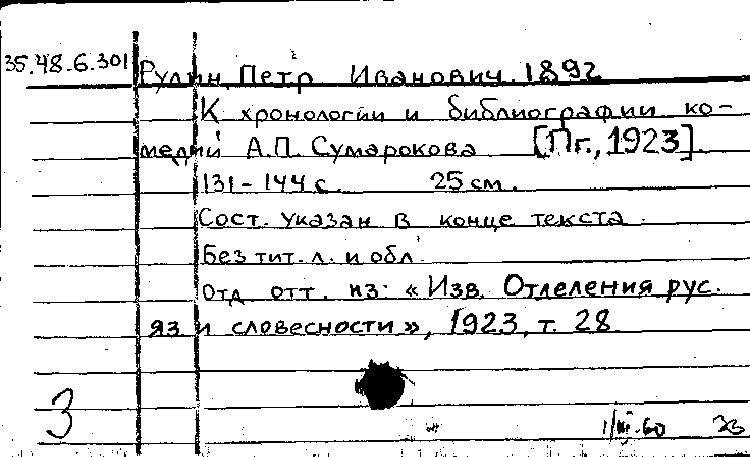 35.48-6.301
Рулин, Петр Иванович. 1892
К хронологии и библиографии ко-
медий А.П. Сумарокова [Пг., 1923].
131-144 с. 25 см.
Сост. указан в конце текста.
Без тит. л. и обл.
Отд. отт. из: «Изв. Отделения рус.
яз и словесности», 1923, т. 28
3